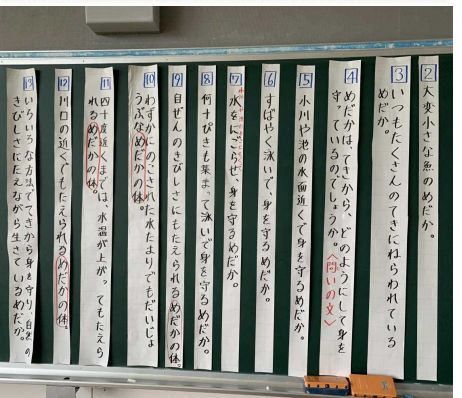 2 大変小さな魚のめだか。
3 いつもたくさんのてきにねらわれている
めだか。
4 めだかは、てきから、どのようにして身を
守っているのでしょうか。〈問いの文〉
5 小川や池の水面近くで身を守るめだか。
6 すばやく泳いで、身を守るめだか。
7 水をにごらせ、身を守るめだか。
8 何十ぴきも集まって泳いで身を守るめだか。
9 自ぜんのきびしさにもたえられるめだかの体。
10 わずかにのこされた水たまりでもだいじょ
うぶなめだかの体。
11 四十度近くまでは、水温が上がってもたえら
れるめだかの体。
12 川口の近くでもたえられるめだかの体。
13 いろいろな方法でてきから身を守り、自然の
きびしさにたえながら生きているめだか。